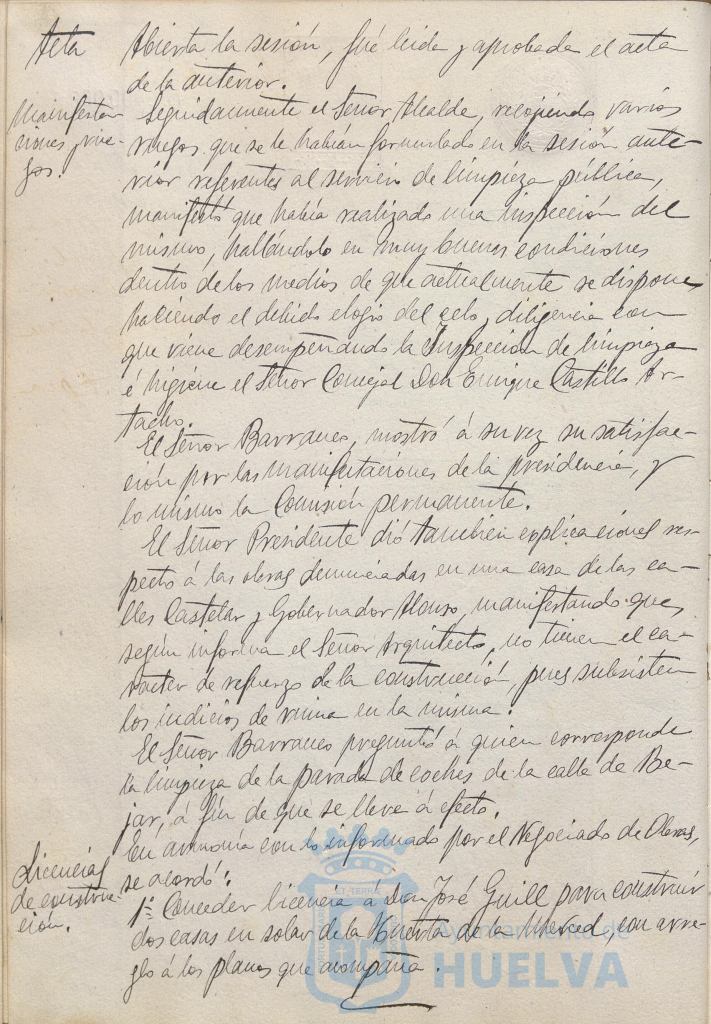 Acta
Abierta la sesión, fué leida y aprobada el acta
de la anterior.
Manifesta-
ciones y rue-
gos.
Seguidamente el Señor Alcalde, recojiendo varios
ruegos que se le habían formulado en la sesión ante-
rior referentes al servicio de limpieza pública,
manifestó que había realizado una inspección del
mismo, hallándolo en muy buenas condiciones
dentro de los medios de que actualmente se dispone,
haciendo el debido elogio del celo y diligencia con
que viene desempeñando la Inspección de limpieza
é higiene el Señor Concejal Don Enrique Castillo Ar-
tacho.
El Señor Barranco, mostró á su vez su satisfac-
ción por las manifestaciones de la presidencia, y
lo mismo la Comisión permanente.
El Señor Presidente dió también explicaciones res-
pecto á las obras denunciadas en una casa de las ca-
lles Castelar y Gobernador Alonso, manifestando que,
según informa el Señor Arquitecto, no tienen el ca-
racter de refuerzo de la construcción, pues subsisten
los indicios de ruina en la misma.
El Señor Barranco preguntó á quien corresponde
la limpieza de la parada de coches de la calle de Be-
jar, á fin de que se lleve á efecto.
Licencias
de construc-
ción.
En armonía con lo informado por el Negociado de Obras,
se acordó:
1º Conceder licencia á Don José Guill para construir
dos casas en solar de la Huerta de la Merced, con arre-
glo á los planos que acompaña.
Ayuntamiento de
HUELVA